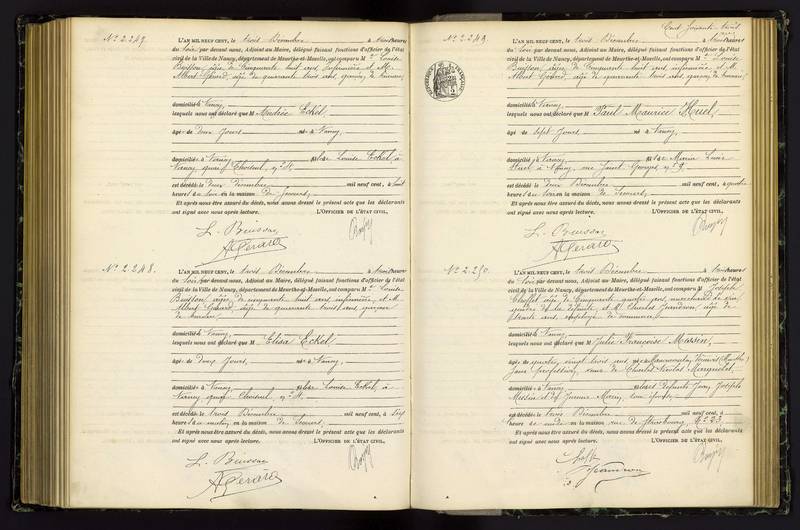 N° 2.247.
L'AN MIL NEUF CENT, le trois Décembre à trois heures
du soir, par devant nous, Adjoint au Maire, délégué faisant fonctions d'officier de l'état
civil de la Ville de Nancy, département de Meurthe-et-Moselle, ont comparu M Louise
Buisson, âgée de cinquante huit ans, infirmière & M.
Albert Gérard, âgé de quarante trois ans, garçon de bureau,
domiciliés à Nancy,
lesquels nous ont déclaré que M Andrée Eckel,
âgée de deux jours née à Nancy,
domiciliée à Nancy, Louise Eckel à
Nancy quai Choiseul, n°
est décédée le deux décembre mil neuf cent, à
heures du soir en la maison de Secours,
Et après nous être assuré du décès, nous avons dressé le présent acte que les déclarants
ont signé avec nous après lecture. L'OFFICIER DE L'ÉTAT CIVIL,
L. Buisson
A Gérard
N° 2.248.
L'AN MIL NEUF CENT, le trois Décembre à trois heures
du soir, par devant nous, Adjoint au Maire, délégué faisant fonctions d'officier de l'état
civil de la Ville de Nancy, département de Meurthe-et-Moselle, ont comparu M Louise
Buisson, âgée de cinquante huit ans, infirmière, et M.
Albert Gérard, âgé de quarante trois ans, garçon
de bureau
domiciliés à Nancy,
lesquels nous ont déclaré que M Elisa Eckel
âgée de deux jours, née à Nancy
domiciliée à Nancy Louise Eckel, à
Nancy quai Choiseul, n°
est décédée le trois Décembre mil neuf cent, à six
heures du matin, en la maison de Secours,
Et après nous être assuré du décès, nous avons dressé le présent acte que les déclarants
ont signé avec nous après lecture. L'OFFICIER DE L'ÉTAT CIVIL,
L. Buisson
A Gérard
N° 2.249.
L'AN MIL NEUF CENT, le trois Décembre à trois heures
du soir, par devant nous, Adjoint au Maire, délégué faisant fonctions d'officier de l'état
civil de la Ville de Nancy, département de Meurthe-et-Moselle, ont comparu M Louise
Buisson, âgée de cinquante huit ans, infirmière et M.
Albert Gérard, âgé de quarante trois ans, garçon de bureau,
domiciliés à Nancy
lesquels nous ont déclaré que M Paul Maurice Huel,
âgé de sept jours né à Nancy,
domicilié à Nancy, Marie Louise
Huel à Nancy, rue Saint Georges n° 9
est décédé le deux Décembre mil neuf cent, à quatre
heures du soir en la maison de Secours,
Et après nous être assuré du décès, nous avons dressé le présent acte que les déclarants
ont signé avec nous après lecture. L'OFFICIER DE L'ÉTAT CIVIL,
L. Buisson
A Gérard
N° 2.250.
L'AN MIL NEUF CENT, le trois Décembre à trois heures
du soir, par devant nous, Adjoint au Maire, délégué faisant fonctions d'officier de l'état
civil de la Ville de Nancy, département de Meurthe-et-Moselle, ont comparu M Joseph
âgé de cinquante quatre ans,
de la défunte, et Charles Jeandron, âgé de
trente ans, employé de commerce
domiciliés à Nancy
lesquels nous ont déclaré que M Julie Françoise Massin,
âgée de quatre vingt trois ans, née à
sans profession, veuve de Charles Nicolas
domiciliée à Nancy des défunts Jean Joseph
Massin et de
est décédée le trois Décembre mil neuf cent, à
heures en la maison, rue de Strasbourg, N° 23
Et après nous être assuré du décès, nous avons dressé le présent acte que les déclarants
ont signé avec nous après lecture. L'OFFICIER DE L'ÉTAT CIVIL,
Jeandron